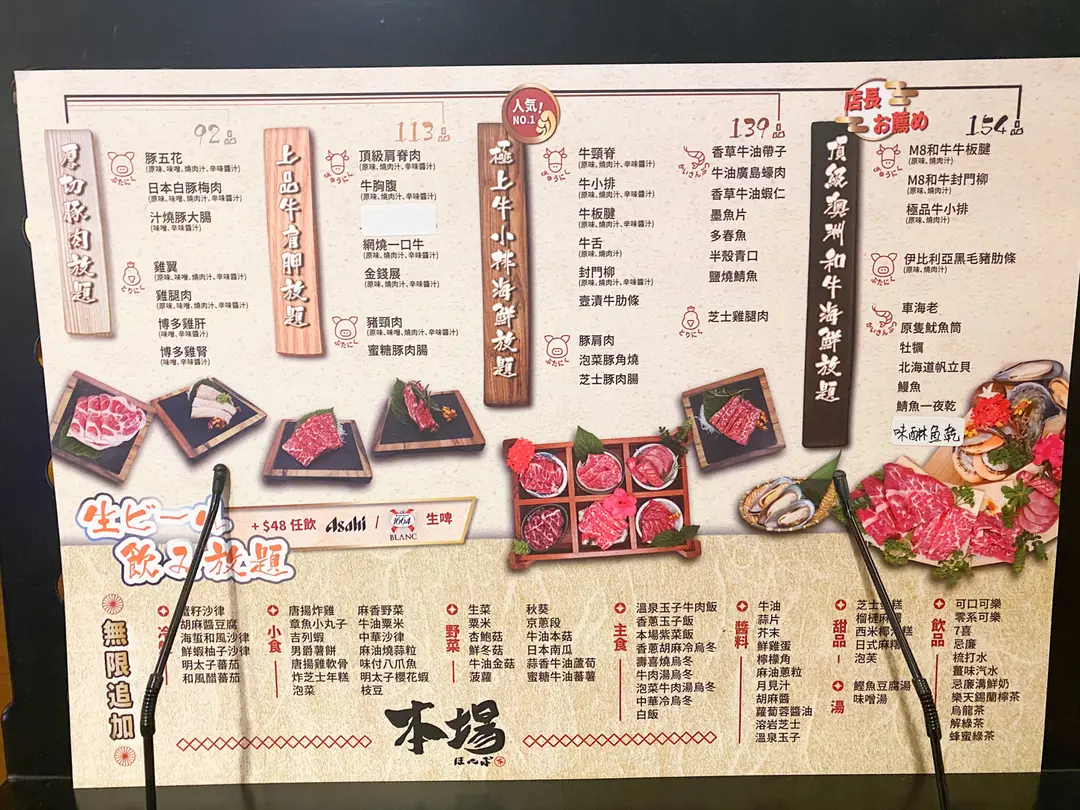 厚切豚肉放題
92品
豚五花
(原味、味噌、燒肉汁、辛味醬汁)
日本白豚梅肉
(原味、味噌、燒肉汁、辛味醬汁)
汁燒豚大腸
(味噌、辛味醬汁)
ぶたにし
雞翼
(原味、味噌、燒肉汁、辛味醬汁)
雞腿肉
(原味、味噌、燒肉汁、辛味醬汁)
博多雞肝
(味噌、辛味醬汁)
博多雞腎
(味噌、辛味醬汁)
とりにし
上品牛肩胛放題
113品
頂級肩脊肉
(原味、燒肉汁、辛味醬汁)
牛胸腹
(原味、燒肉汁、辛味醬汁)
網燒一口牛
(原味、燒肉汁、辛味醬汁)
金錢展
(原味、燒肉汁、辛味醬汁)
豬頸肉
(原味、味噌、燒肉汁、辛味醬汁)
蜜糖豚肉腸
人気!
NO.1
極上牛小排海鮮放題
139品
牛頸脊
(原味、燒肉汁、辛味醬汁)
牛小排
(原味、燒肉汁、辛味醬汁)
牛板腱
(原味、燒肉汁、辛味醬汁)
牛舌
(原味、燒肉汁)
封門柳
(原味、燒肉汁、辛味醬汁)
壺漬牛肋條
豚肩肉
泡菜豚角燒
芝士豚肉腸
香草牛油帶子
牛油廣島蠔肉
香草牛油蝦仁
墨魚片
多春魚
半殼青口
鹽燒鯖魚
芝士雞腿肉
店長
お薦め
頂級澳洲和牛海鮮放題
154品
M8和牛牛板腱
(原味、燒肉汁)
M8和牛封門柳
(原味、燒肉汁)
極品牛小排
(原味、燒肉汁)
伊比利亞黑毛豬肋條
(原味、燒肉汁)
車海老
原隻魷魚筒
牡蠣
北海道帆立貝
鰻魚
鯖魚一夜乾
味醂魚乾
生ビール
飲み放題
+$48 任飲 Asahi / 1664 BLANC 生啤
無限追加
沙律
胡麻醬豆腐
海蜇和風沙律
鮮蝦柚子沙律
明太子蕃茄
和風醋蕃茄
小食
唐揚炸雞
章魚小丸子
吉列蝦
男爵薯餅
唐揚雞軟骨
炸芝士年糕
泡菜
麻香野菜
牛油粟米
中華沙律
麻油燒蒜粒
味付八爪魚
明太子櫻花蝦
枝豆
野菜
生菜
粟米
杏鮑菇
鮮冬菇
牛油金菇
菠蘿
秋葵
京蔥段
牛油本菇
日本南瓜
蒜香牛油蘆荀
蜜糖牛油蕃薯
主食
溫泉玉子牛肉飯
香蔥玉子飯
本場紫菜飯
香蔥胡麻冷烏冬
壽喜燒烏冬
牛肉湯烏冬
泡菜牛肉湯烏冬
中華冷烏冬
白飯
醬料
牛油
蒜片
芥末
鮮雞蛋
檸檬角
麻油蔥粒
月見汁
胡麻醬
蘿蔔蓉醬油
溶岩芝士
溫泉玉子
甜品
西米椰汁糕
日式麻糬
泡芙
湯
鰹魚豆腐湯
味噌湯
飲品
可口可樂
零系可樂
7喜
忌廉
梳打水
薑味汽水
忌廉溝鮮奶
樂天錫蘭檸茶
烏龍茶
解綠茶
蜂蜜綠茶
本場
ほんば